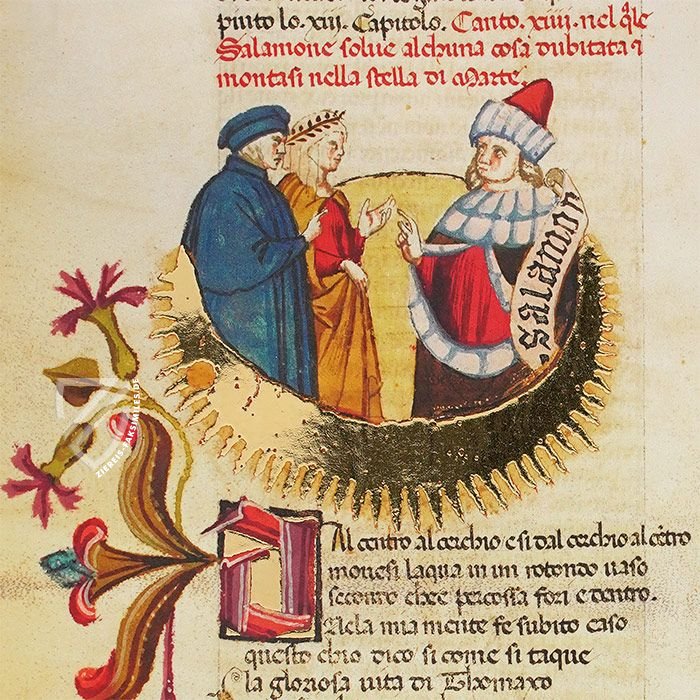 piuto lo. xiii. Capitolo. Canto. xiiii. nel q̃le
Salamone solue alchuna cosa dubitata ⁊
montasi nella stella di Marte.
salamon
ZIEREIS-FAKSIMILES.DE
Al centro al cerchio e si dal cerchio al cẽtro
mouesi laqua in un rotondo uaso
secondo che e percossa fori e dentro.
Nela mia mente fe subito caso
questo chio dico si come si taque
la gloriosa uita di Thomaxo